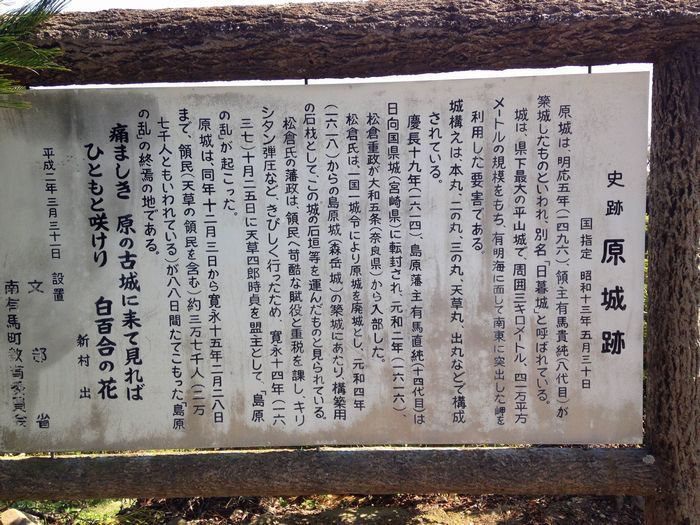 史跡 原城跡
国指定 昭和十三年五月三十日
原城は、明応五年(一四九六)領主有馬貴純(八代目)が
築城したものといわれ、別名「日暮城」と呼ばれている。
城は、県下最大の平山城で、周囲三キロメートル、四一万平方
メートルの規模をもち、有明海に面して南東に突出した岬を
利用した要害である。
城構えは、本丸、二の丸、三の丸、天草丸、出丸などで構成
されている。
慶長十九年(一六一四)島原藩主有馬直純(十四代目)は
日向国県城(宮崎県)に転封され、元和二年(一六一六)、
松倉重政が大和五条(奈良県)から入部した。
松倉氏は、一国一城令により原城を廃城とし、元和四年
(一六一八)からの島原城(森岳城)の築城にあたり、構築用
の石材として、この城の石垣等を運んだものと見られている。
松倉氏の藩政は、領民へ苛酷な賦役と重税を課し、キリ
シタン弾圧など、きびしく行ったため、寛永十四年(一六
三七)十月二五日に天草四郎時貞を盟主として、「島原
の乱」が起こった。
原城は、同年十二月三日から寛永十五年二月二八日
まで、領民(天草の領民を含む)約三万七千人(二万
七千人ともいわれている)が八八日間たてこもった「島原
の乱」の終焉の地である。
痛ましき 原の古城に来て見れば
ひともと咲けり 白百合の花
新村 出
平成二年三月三十一日 設置
文部省
南有馬町教育委員会